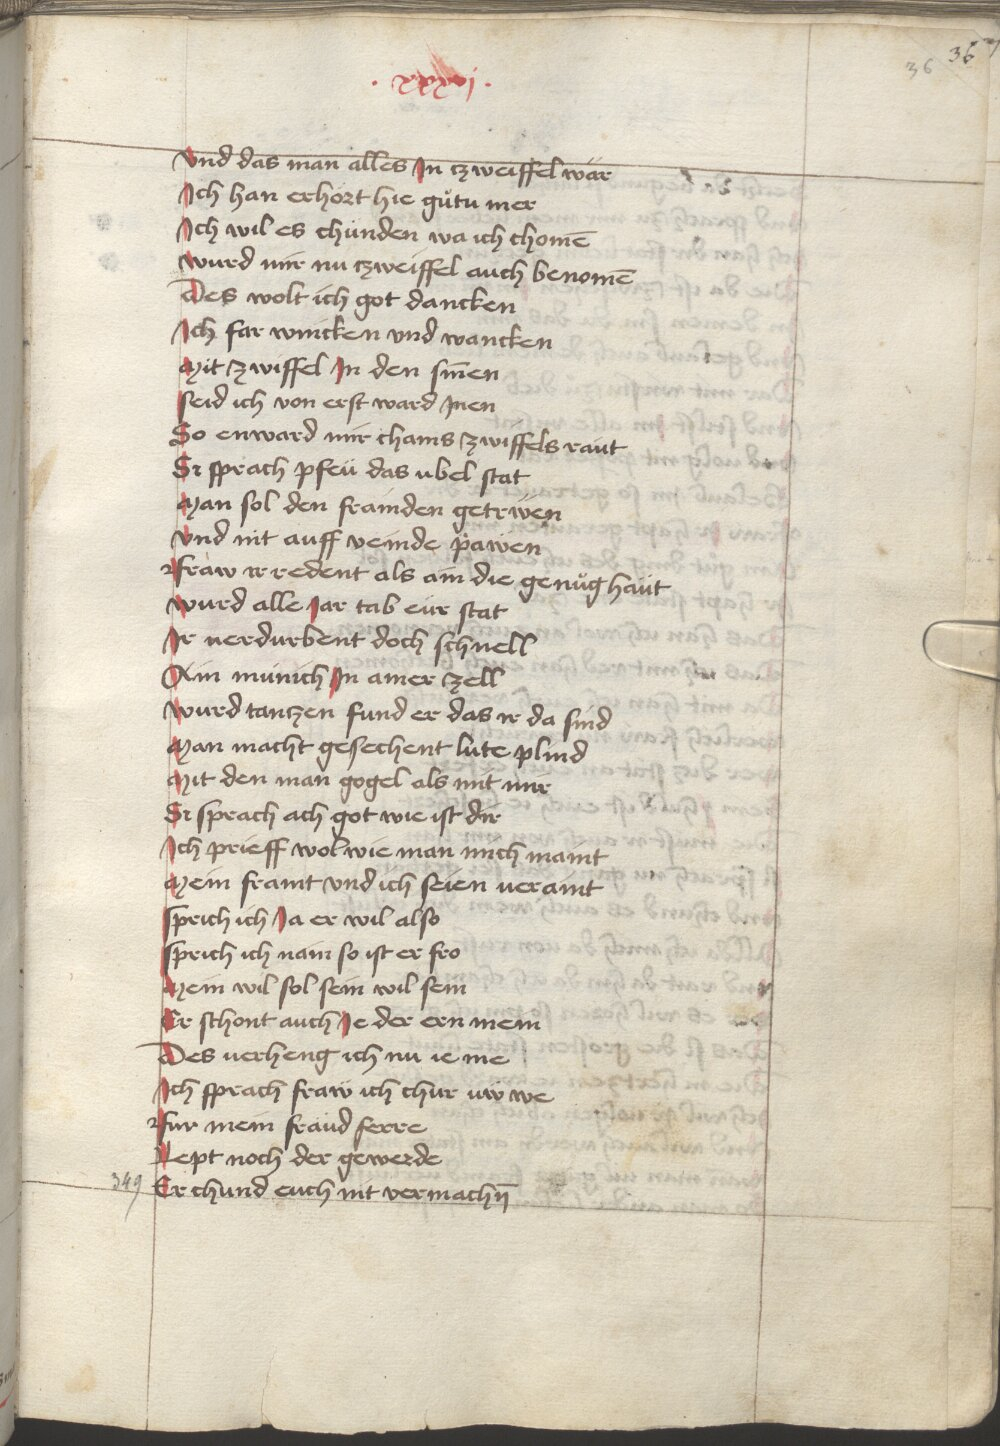 36 36
· xxxvj ·
Vnd das man alles In tzweiffel wär
Ich han erhört hie gůtu mer
Ich wil es chünden wa ich chomē
wurd mir nu tzweiffel auch benomē
Des wolt ich got dancken
Ich far wincken vnd wancken
Mit zwiffel In den sin̄en
seid ich von erst ward Inen
So enward mir chains zwiffels raut
Si sprach pfeü das ubel stat
Man sol den frainden getrẅen
vnd nit auff veinde päwen
fraw ir redent als ain die genůg haüt
wurd alle Jar tab eür stat
Ir verdurbent doch schnell
Ain münich In ainer zell
wurd tantzen fund er das ir da sind
Man macht gesechent lüte plind
Mit den man gogel als mit mir
Si sprach ach got wie ist dir
Ich prieff wol wie man mich maint
Mein fraint vnd ich seien veraint
sprich ich Ja er wil also
sprich ich nain so ist er fro
Mein wil sol sein wil sein
Er schont auch Je der ern mein
Des verheng ich nu ie me
Ich sprach fraw ich chür üw we
für mein fräud ferre
Lept noch der gewerde
349 Er chund euch nit vermachn̄